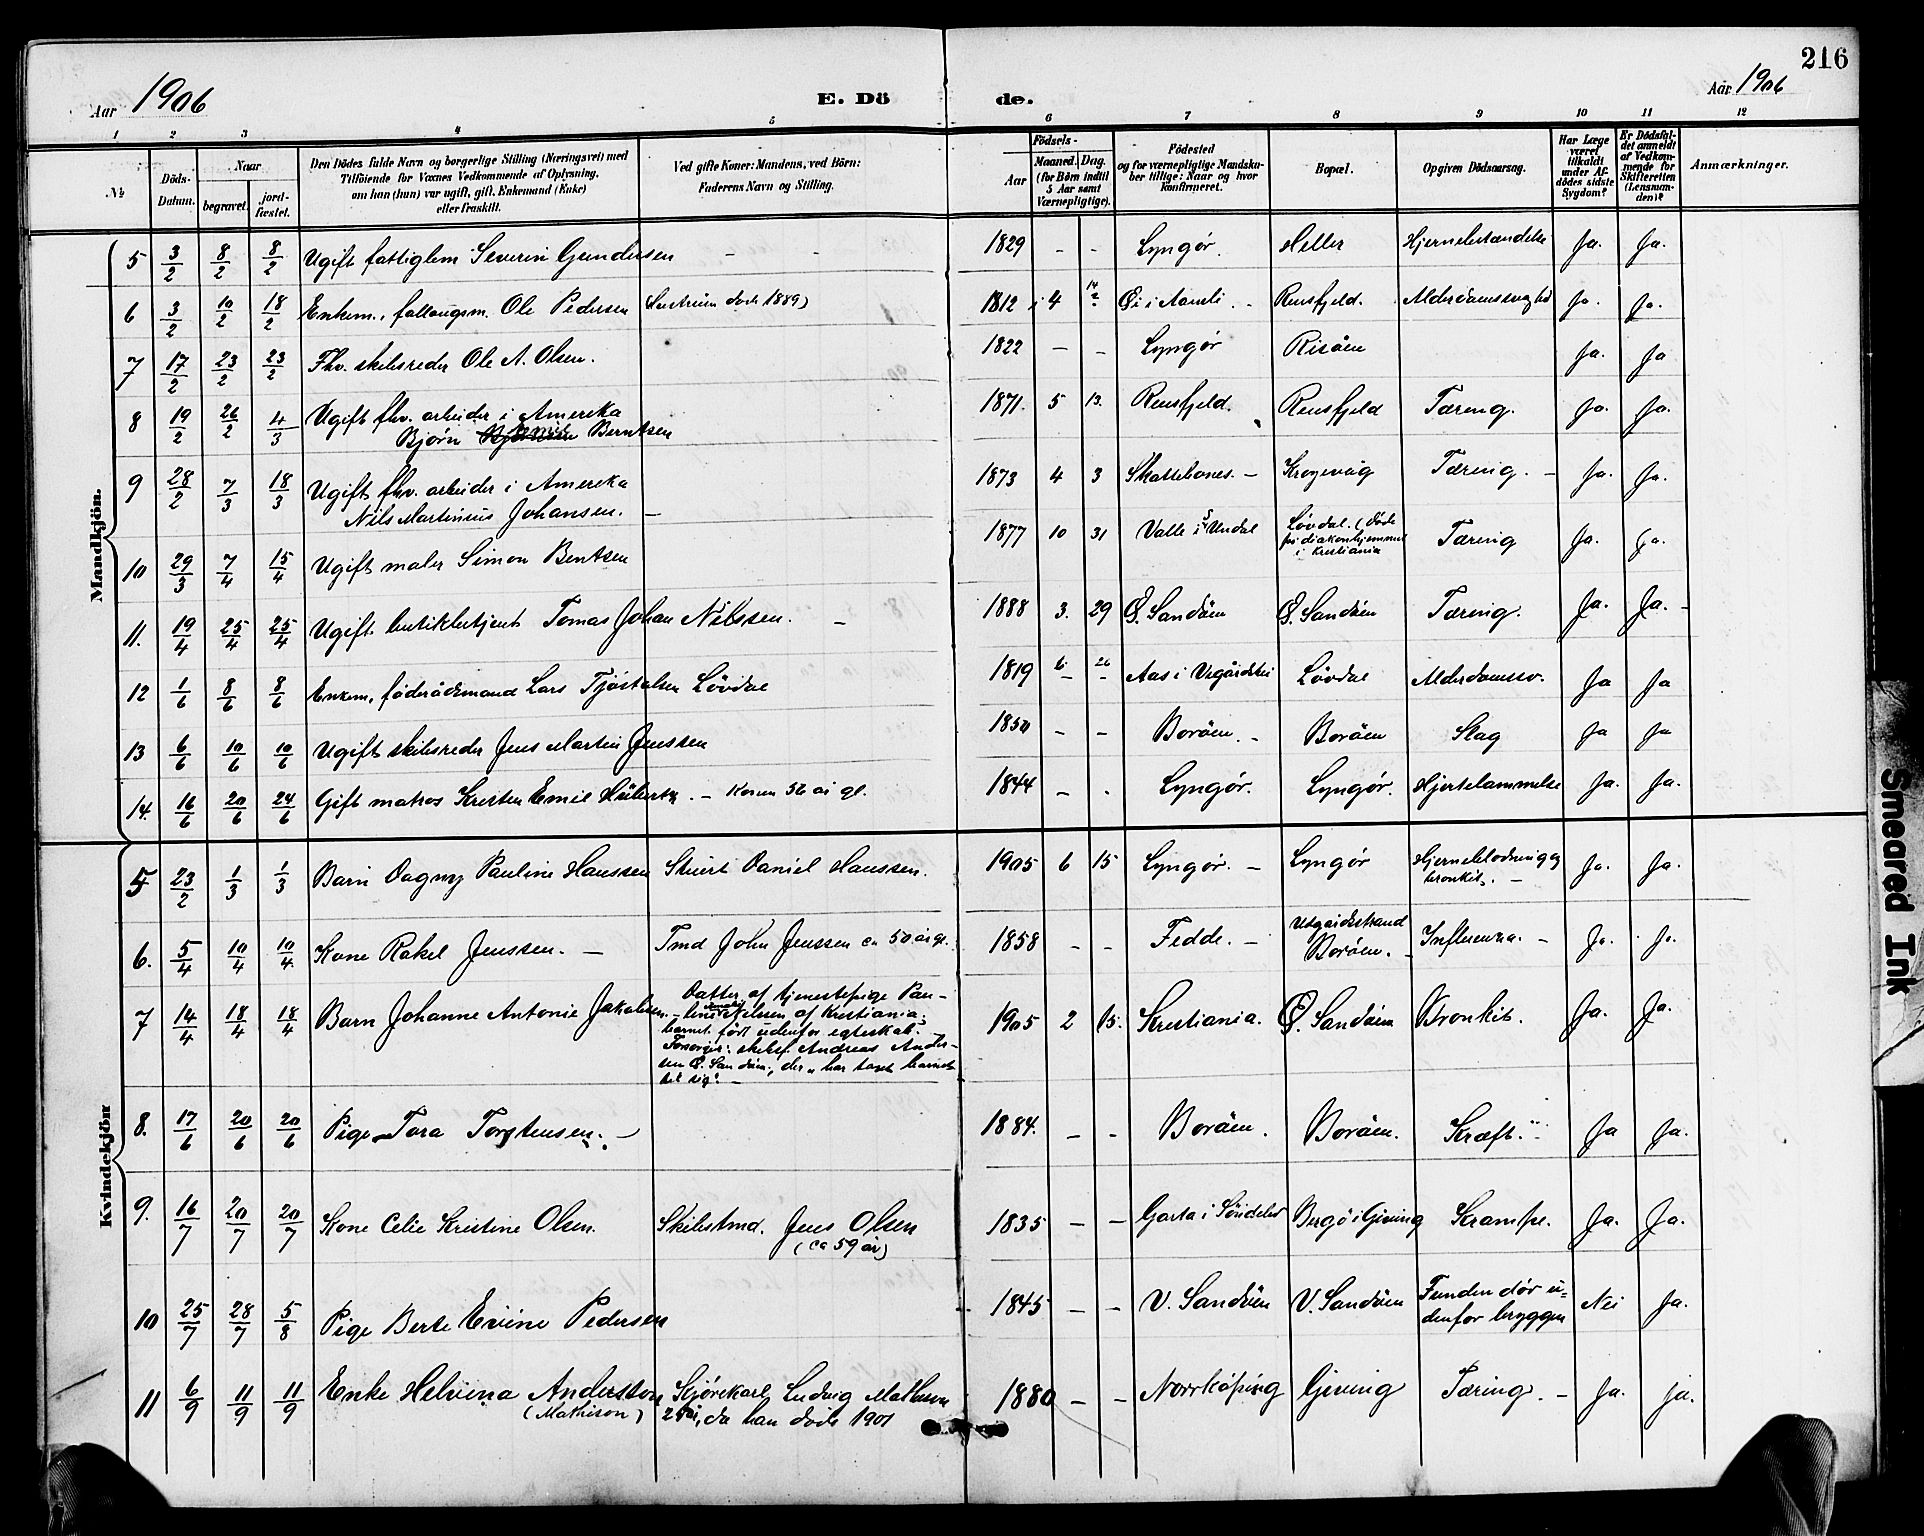 216
Aar 1906
E. Dö de.
Aar 1906
1 2 3 4 5 6 7 8 9 10 11 12
№
Döds-Datum.
Naar begravet. jordfæstet.
Den Dödes fulde Navn og borgerlige Stilling (Næringsvei) med Tilföiende for Voxnes Vedkommende af Oplysning, om han (hun) var ugift, gift, Enkemand (Enke) eller fraskilt.
Ved gifte Koner: Mandens, ved Börn: Faderens Navn og Stilling.
Födsels- Aar Maaned. Dag. (for Börn indtil 5 Aar samt Værnepligtige).
Födested og for værnepligtige Mandskaber tillige: Naar og hvor konfirmeret.
Bopæl.
Opgiven Dödsaarsag.
Har Læge været tilkaldt under Afdödes sidste Sygdom?
Er Dödsfaldet anmeldt af Vedkommende for Skifteretten (Lensmanden)?
Anmærkninger.
Mandkjön.
5 3/2 8/2 8/2 Ugift fattiglem Severin Gundersen – – 1829 – – Lyngør. Heller Hjernebetændelse Ja. Ja.
6 3/2 10/2 18/2 Enkem., follaugsm. Ole Pedersen døde 1889) 1812 4 i Aamli – Rensfjeld. Alderdomssvaghed Ja. Ja.
7 17/2 23/2 23/2 Fhv. skibsreder Ole A. Olsen. 1822 – – Lyngør Risøen Ja. Ja
8 19/2 26/2 4/3 Ugift fhv. arbeider i Amerika
Bjørn Berntsen 1871. 5 13. Rensfjeld. Rensfjeld Tæring. Ja. Ja.
9 28/2 7/3 18/3 Ugift fhv. arbeider i Amerika
Nils Martinius Johansen. – 1873 4 3 Skattebones. – Krogevåg Tæring. – Ja. Ja.
10 29/3 7/4 15/4 Ugift maler Simon Bentsen 1877 10 31 Valle i S. Undal Løvdal. (døde på diakonhjemmet i Kristiania Tæring Ja. Ja.
11. 19/4 25/4 25/4 Ugift butikbetjent Tomas Johan Nilssen. – 1888 3. 29 Ø. Sandøen Ø. Sandøen Tæring. Ja. Ja. –
12 1/6 8/6 8/6 Enkem, føderådsmand Lars Tjøstolsen Løvdal 1819 6 26 Aas i Vegårdshei Løvdal Alderdomssv. Ja Ja
13 6/6 10/6 10/6 Ugift skibsreder Jens Martin Jenssen 1850 – – Borøen. – Borøen Slag Ja Ja
14. 16/6 20/6 24/6 Gift matros Kristen Emil – Konen 56 år gl. 1844 – . Lyngør. Lyngør. Hjertelammelse Ja. Ja.
Kvindekjön
5 23/2 1/3 1/3 Barn Dagny Pauline Hanssen Stuert Daniel Hanssen. 1905 6 15 Lyngør. – Lyngør Hjerneblødning og bronkit. – Ja. Ja.
6. 5/4 10/4 10/4 Kone Rakel Jenssen. – Tmd John Jenssen ca 50 år gl. 1858 – – Fedde. – Utgårdstrand Borøen. Influenza. – Ja. Ja.
7 14/4 18/4 18/4 Barn Johanne Antonie Jakobsen. Datter af tjenestepige Pau-
line Nilsen af Kristiania;
barnet født udenfor egteskab. –
Forsørger: skibsf. Andreas Ander-
sen Ø. Sandøen, der "har taget barnet
til sig". – 1905 2 15. Kristiania. Ø. Sandøen Bronkit. Ja. Ja.
8. 17/6 20/6 20/6 Pige Tora Torstensen. – 1884. – – Borøen. Borøen. Kræft. Ja Ja.
9. 16/7 20/7 20/7 Kone Celie Kristine Olsen. Skibstmd. Jens Olsen
(ca 59 år) 1835 – – Garta i Søndeled Bergø i Gjeving Krampe. Ja. Ja.
10 25/7 28/7 5/8 Pige Berte Evine Pedersen 1845 – – V. Sandøen V. Sandøen Funden død u-
denfor bryggen Nei Ja.
11 6/9 11/9 11/9 Enke Helvina Andersson
(Mathison) Kjørekarl Ludvig Mathison
25 år, da han døde 1901 1880 – – Norrköping Gjeving Tæring. – Ja. Ja.
Smeared Ink